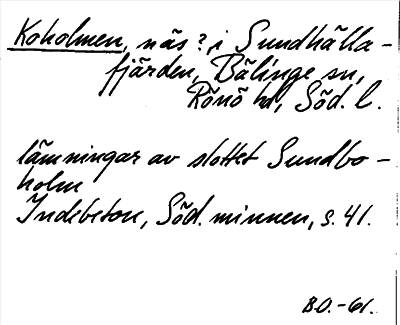 Koholmen, näs? i Sundhälla-
fjärden, Bälinge sn,
Rönö hd, Söd. l.
lämningar av slottet Sundbo-
holm
Indebetou, Söd. minnen, s. 41.
B.O.-61.